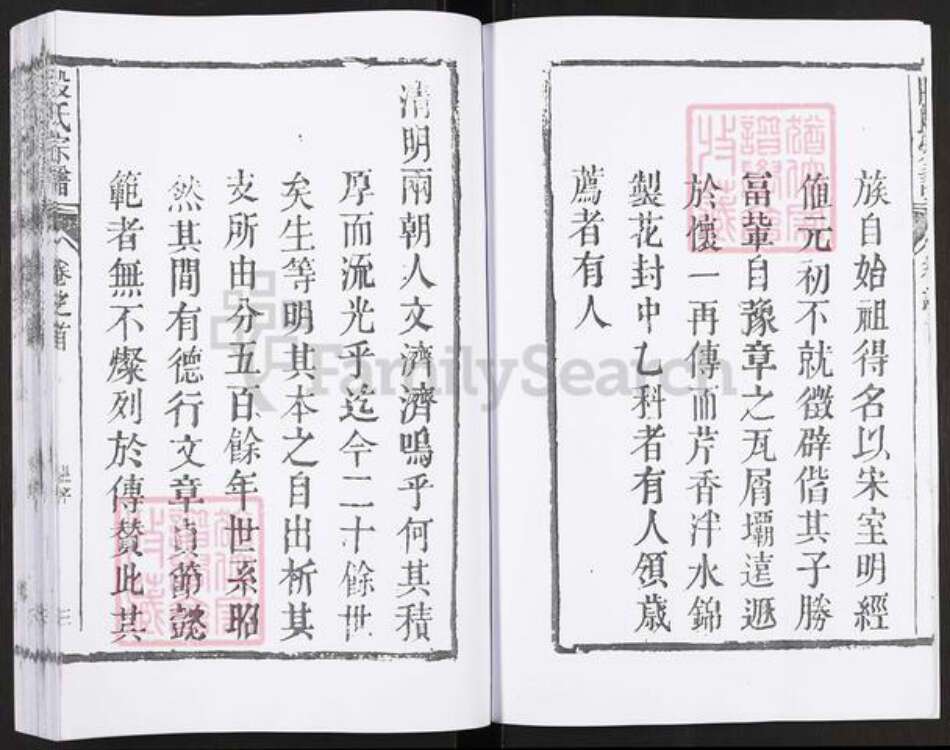 族自始祖得名以宋室明經
値元初不就徵辟偕其子勝
富輩自豫章之瓦屑壩遠遯
於懷一再傳而芹香泮水錦
製花封中乙科者有人領歲
薦者有人
清明兩朝人文濟濟嗚乎何其積
厚而流光乎迄今二十餘世
矣生等明其本之自出析其
支所由分五百餘年世系昭
然其間有德行文章貞節懿
範者無不燦列於傳贊此其
殷氏宗譜
卷之首
三
FamilySearch